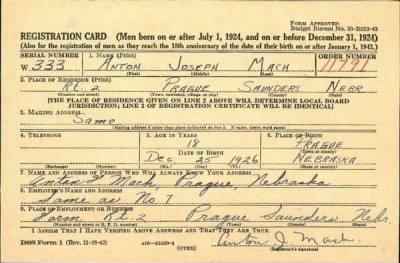 Form Approved
Budget Bureau No. 33-R012-43
REGISTRATION CARD (Men born on or after July 1, 1924, and on or before December 31, 1924)
(Also for the registration of men as they reach the 18th anniversary of the date of their birth on or after January 1, 1943.)
SERIAL NUMBER 1. NAME (Print) ORDER NUMBER
W. 333 ANTON JOSEPH MACH 11791
(First) (Middle) (Last)
2. PLACE OF RESIDENCE (Print)
Rt. 2 PRAGUE SAUNDERS NEBR
(Number and street) (Town, township, village, or city) (County) (State)
[THE PLACE OF RESIDENCE GIVEN ON LINE 2 ABOVE WILL DETERMINE LOCAL BOARD
JURISDICTION; LINE 2 OF REGISTRATION CERTIFICATE WILL BE IDENTICAL]
3. MAILING ADDRESS
Same
[Mailing address if other than place indicated on line 2. If same, insert word same]
4. TELEPHONE 5. AGE IN YEARS 6. PLACE OF BIRTH
18 PRAGUE
DATE OF BIRTH (Town or county)
Dec 25 1926 NEBRASKA
(Exchange) (Number) (Mo.) (Day) (Yr.) (State or country)
7. NAME AND ADDRESS OF PERSON WHO WILL ALWAYS KNOW YOUR ADDRESS
Mach, Prague, Nebraska
8. EMPLOYER'S NAME AND ADDRESS
Same as No. 7
9. PLACE OF EMPLOYMENT OR BUSINESS
Farm Rt. 2 Prague Saunders Nebr.
(Number and street or R. F. D. number) (Town) (County) (State)
I AFFIRM THAT I HAVE VERIFIED ABOVE ANSWERS AND THAT THEY ARE TRUE.
DSS Form 1 (OVER) Anton J. Mach